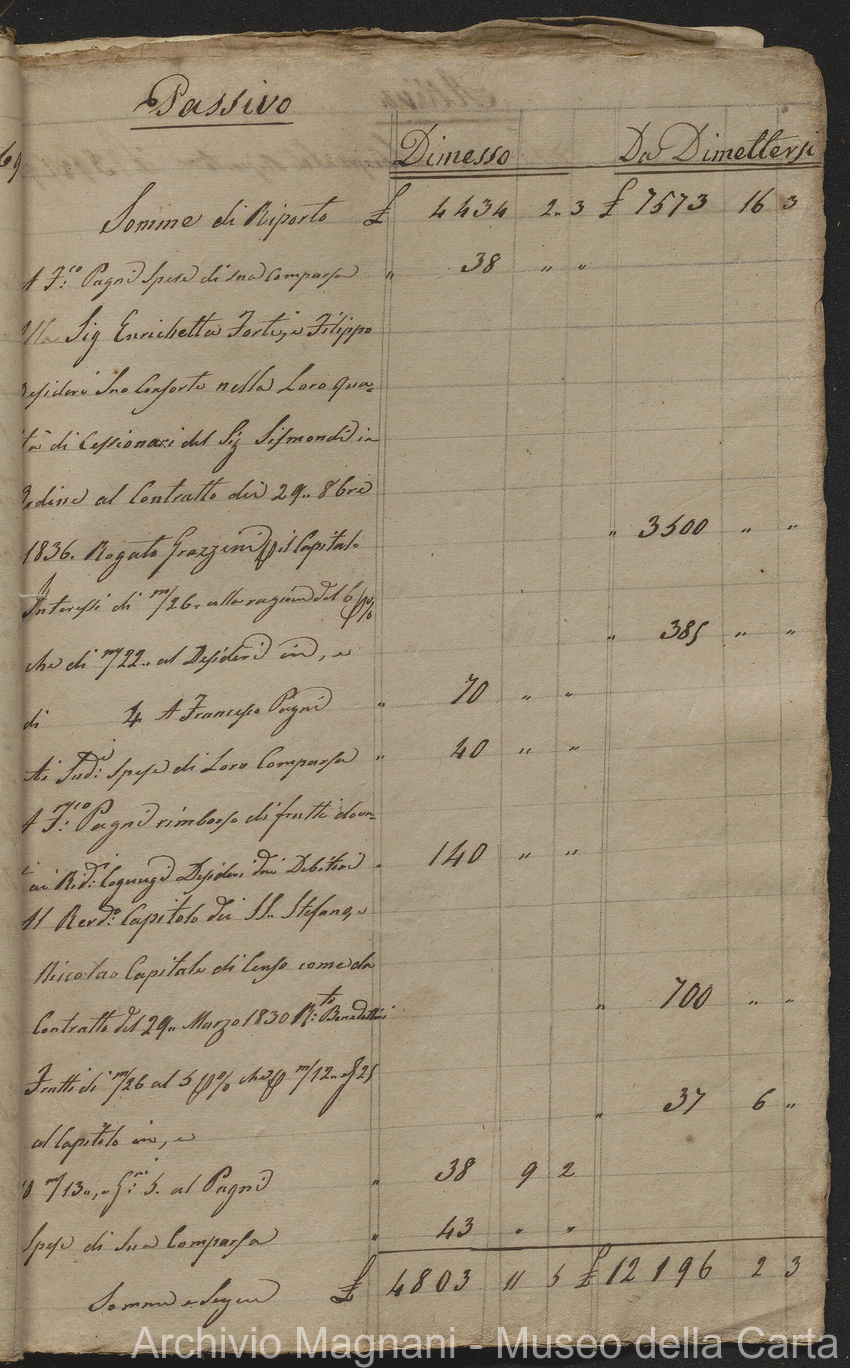 Passivo
Dimesso Da Dimettersi
Somme di Riporto £ 4434 2.. 3 £ 7573 16 3
A F:co Pagni Spese di sua Comparsa " 38 " "
Alla Sig Enrichetta Forti, e Filippo
Desideri Suo Consorte nella Loro qua=
ità di Cessionari del Sig Sismondi in
Ordine al Contratto dei 29.. 8bre
1836. Rogato Grazzini il Capitale " 3500 " "
Interessi di m/26.. alla ragione del 6 p%
che di m/22.. al Desideri in, e " 385 " "
di 4 A Francesco Pagni " 70 " "
Ai Sud:i Spese di Loro Comparsa " 40 " "
A F:co Pagni rimborso di frutti dova=
ai Rid:i Coniugi Desideri dai Debitori " 140 " "
Al Revd:o Capitolo dei SS.. Stefano, e
Niccolao Capitale di Censo come da
Contratto del 29.. Marzo 1830 R:to Benedettini " 700 " "
Frutti di m/26 al 5 p% che p m/12.. e g 25
al Capitolo in, e " 37 6 "
m/13.., e G:ni 5. al Pagni " 38 9 2
Spese di Sua Comparsa " 43 " "
Somma e Segue £ 4803 11 5 £ 12196 2 3
Archivio Magnani - Museo della Carta